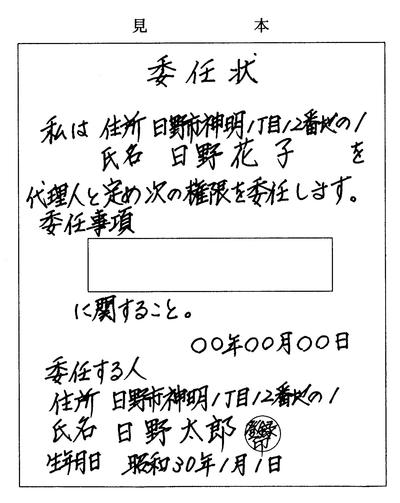 見本
委任状
私は 住所 日野市神明1丁目12番地の1
氏名 日野花子 を
代理人と定め次の権限を委任します。
委任事項
に関すること。
○○年○○月○○日
委任する人
住所 日野市神明1丁目12番地の1
氏名 日野太郎 登録印
生年月日 昭和30年1月1日